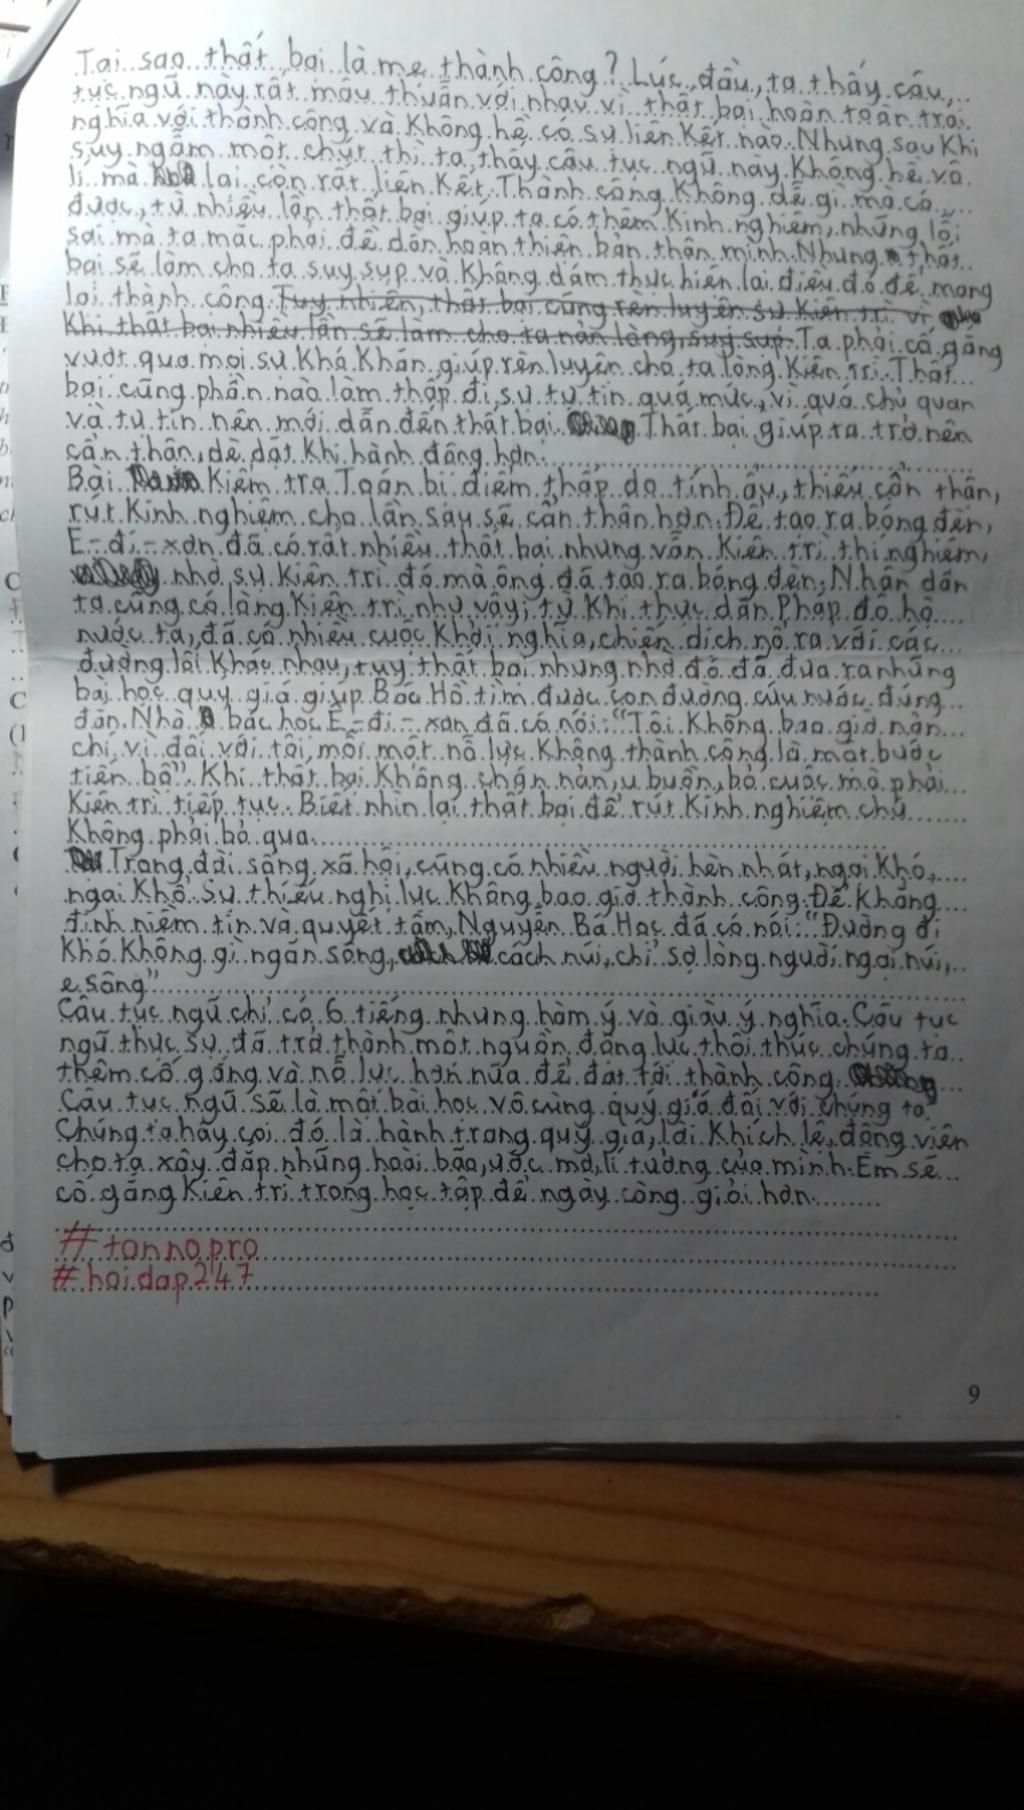 Tại sao thất bại là mẹ thành công? Lúc đầu, ta thấy câu
tục ngữ này rất mâu thuẫn với nhau vì thất bại hoàn toàn trái
nghĩa với thành công và không hề có sự liên kết nào. Nhưng sau khi
suy ngẫm một chút thì ta thấy câu tục ngữ này không hề vô
lí mà lại còn rất liên kết. Thành công không dễ gì mà có
được, từ nhiều lần thất bại giúp ta có thêm kinh nghiệm, những lỗi
sai mà ta mắc phải để dần hoàn thiện bản thân mình. Nhưng thất
bại sẽ làm cho ta suy sụp và không dám thực hiện lại điều đó để mang
lại thành công. Tuy nhiên, thất bại cũng rèn luyện sự kiên trì vì
khi thất bại nhiều lần sẽ làm cho ta nản lòng, suy sụp. Ta phải cố gắng
vượt qua mọi sự khó khăn giúp rèn luyện cho ta lòng kiên trì. Thất
bại cũng phần nào làm thấp đi sự tự tin quá mức, vì quá chủ quan
và tự tin nên mới dẫn đến thất bại. Thất bại giúp ta trở nên
cẩn thận, dè dặt khi hành động hơn.
Bài kiểm tra Toán bị điểm thấp do tính ẩu, thiếu cẩn thận,
rút kinh nghiệm cho lần sau sẽ cẩn thận hơn. Để tạo ra bóng đèn,
Ê-đi-xơn đã có rất nhiều thất bại nhưng vẫn kiên trì thí nghiệm,
nhờ sự kiên trì đó mà ông đã tạo ra bóng đèn; Nhân dân
ta cũng có lòng kiên trì như vậy; từ khi thực dân Pháp đô hộ
nước ta, đã có nhiều cuộc khởi nghĩa, chiến dịch nổ ra với các
đường lối khác nhau, tuy thất bại nhưng nhờ đó đã đưa ra những
bài học quý giá giúp Bác Hồ tìm được con đường cứu nước đúng
đắn. Nhà bác học Ê-đi-xơn đã có nói: "Tôi không bao giờ nản
chí, vì đối với tôi, mỗi một nỗ lực không thành công là một bước
tiến bộ". Khi thất bại không chán nản, u buồn, bỏ cuộc mà phải
kiên trì tiếp tục. Biết nhìn lại thất bại để rút kinh nghiệm chứ
không phải bỏ qua.
Trong đời sống xã hội, cũng có nhiều người hèn nhát, ngại khó,
ngại khổ. Sự thiếu nghị lực không bao giờ thành công. Để khẳng
định niềm tin và quyết tâm, Nguyễn Bá Học đã có nói: "Đường đi
khó không gì ngăn sông, cách núi, chỉ sợ lòng người ngại núi,
e sông"
Câu tục ngữ chỉ có 6 tiếng nhưng hàm ý và giàu ý nghĩa. Câu tục
ngữ thực sự đã trở thành một nguồn động lực thôi thúc chúng ta
thêm cố gắng và nỗ lực hơn nữa để đạt tới thành công.
Câu tục ngữ sẽ là một bài học vô cùng quý giá đối với chúng ta.
Chúng ta hãy coi đó là hành trang quý giá, lời khích lệ, động viên
cho ta xây đắp những hoài bão, ước mơ, lí tưởng của mình. Em sẽ
cố gắng kiên trì trong học tập để ngày càng giỏi hơn.
#tannopro
#hoidap247
9